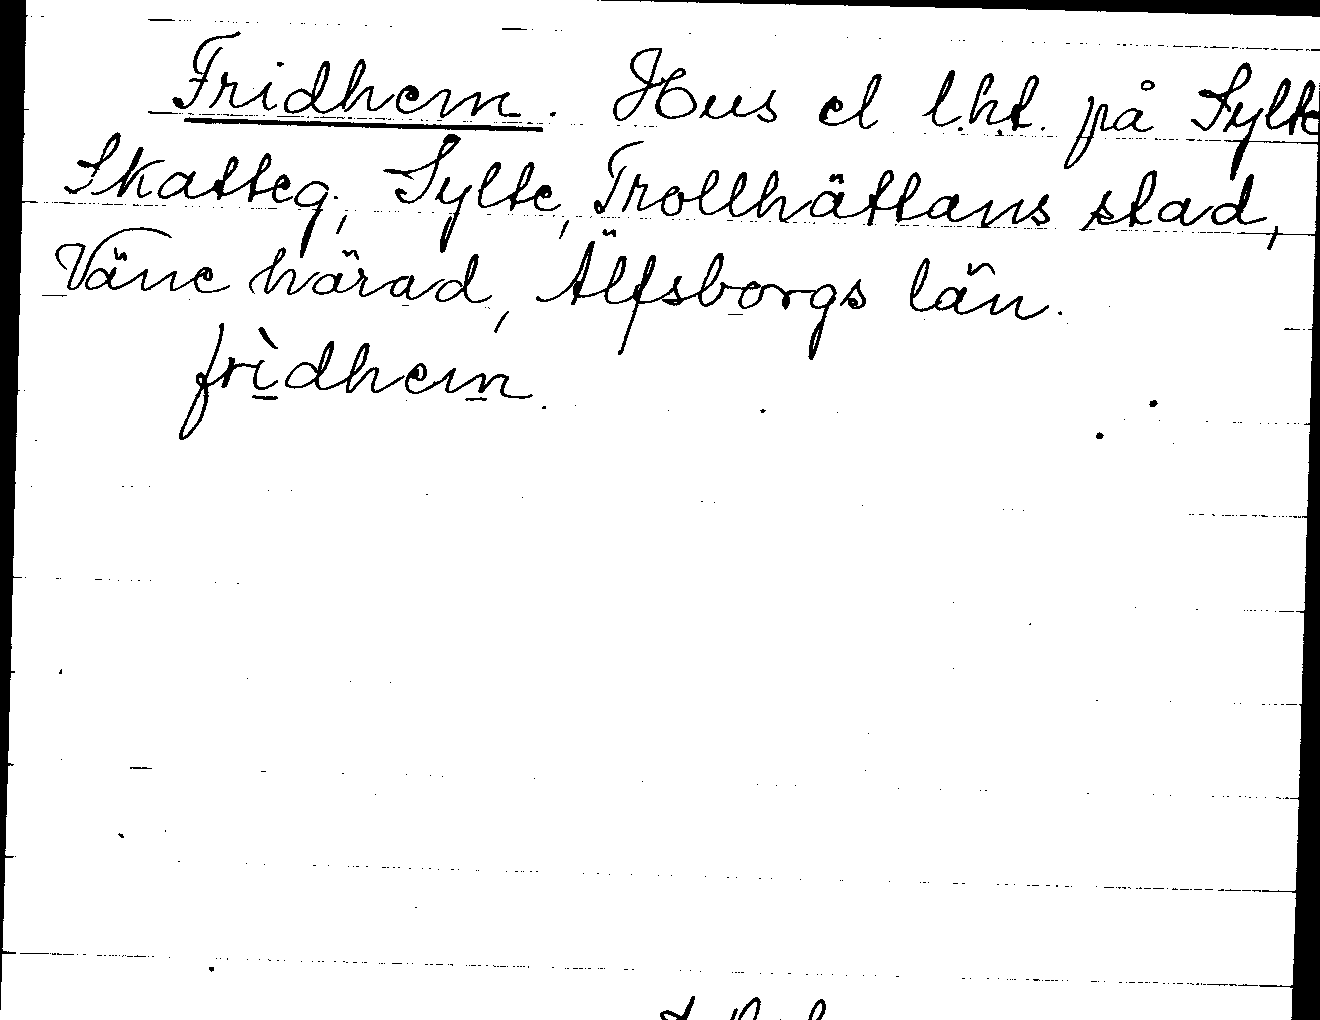 Fridhem. Hus el l.h.t. på Sylte
Skatteg., Sylte, Trollhättans stad,
Väne härad, Älfsborgs län.
frìdhem.